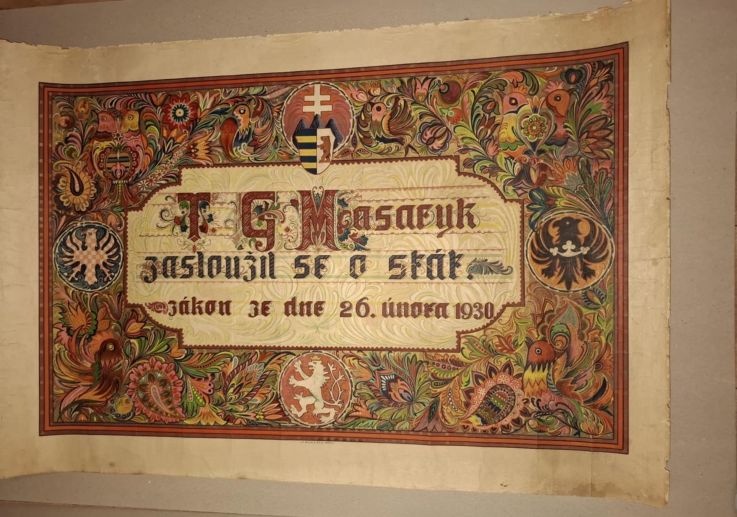 T G Masaryk
zasloužil se o stát
zákon ze dne 26. února 1930